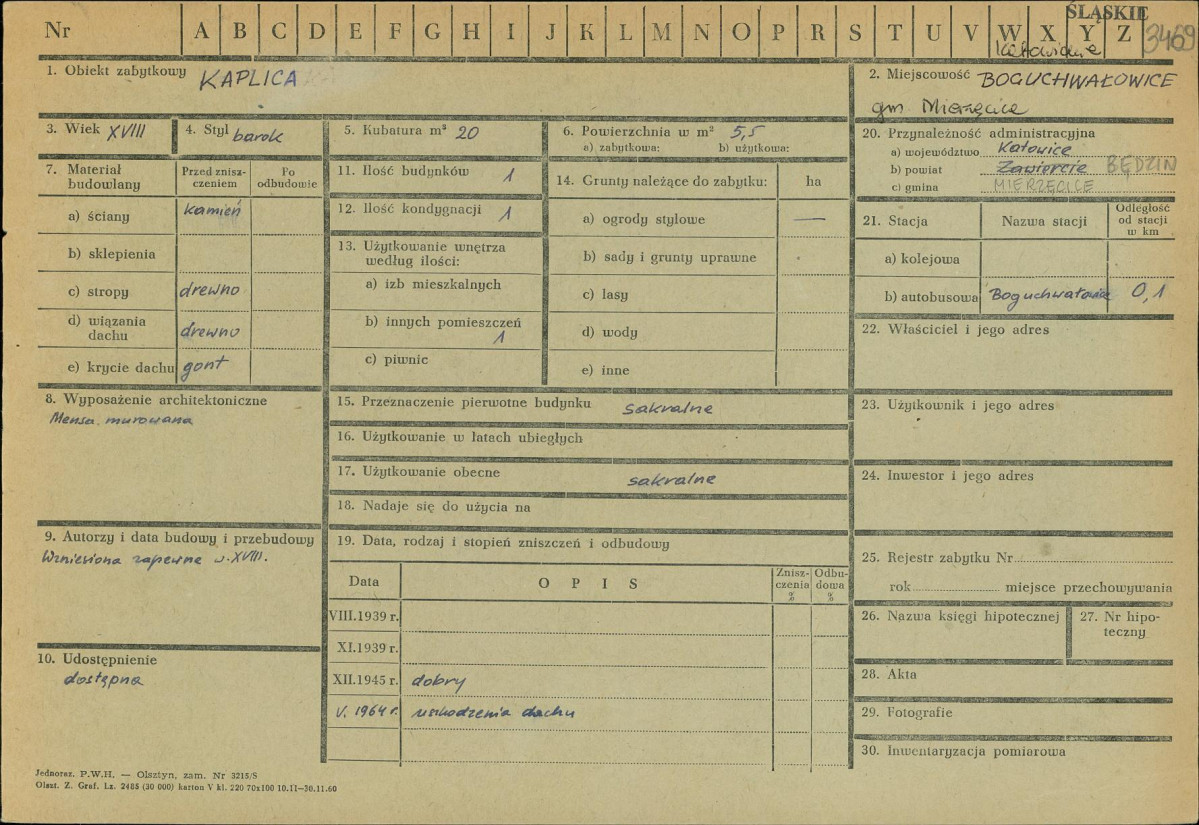 Nr A B C D E F G H I J K L M N O P R S T U V W X Y Z
ŚLĄSKIE
3469
Katowickie
1. Obiekt zabytkowy KAPLICA
2. Miejscowość BOGUCHWAŁOWICE
gm. Mierzęcice
3. Wiek XVIII
4. Styl barok
5. Kubatura m³ 20
6. Powierzchnia w m² 5,5
a) zabytkowa: b) użytkowa:
7. Materiał budowlany
Przed zniszczeniem
Po odbudowie
a) ściany kamień
b) sklepienia
c) stropy drewno
d) wiązania dachu drewno
e) krycie dachu gont
8. Wyposażenie architektoniczne
Mensa murowana
9. Autorzy i data budowy i przebudowy
Wzniesiona zapewne w XVIII.
10. Udostępnienie
dostępna
11. Ilość budynków 1
12. Ilość kondygnacji 1
13. Użytkowanie wnętrza według ilości:
a) izb mieszkalnych
b) innych pomieszczeń 1
c) piwnic
14. Grunty należące do zabytku: ha
a) ogrody stylowe —
b) sady i grunty uprawne
c) lasy
d) wody
e) inne
15. Przeznaczenie pierwotne budynku sakralne
16. Użytkowanie w latach ubiegłych
17. Użytkowanie obecne sakralne
18. Nadaje się do użycia na
19. Data, rodzaj i stopień zniszczeń i odbudowy
Data OPIS Zniszczenia % Odbudowa %
VIII.1939 r.
XI.1939 r.
XII.1945 r. dobry
V. 1964 r. uszkodzenia dachu
20. Przynależność administracyjna
a) województwo Katowice
b) powiat Zawiercie BĘDZIN
c) gmina MIERZĘCICE
21. Stacja Nazwa stacji Odległość od stacji w km
a) kolejowa
b) autobusowa Boguchwałowice 0,1
22. Właściciel i jego adres
23. Użytkownik i jego adres
24. Inwestor i jego adres
25. Rejestr zabytku Nr
rok miejsce przechowywania
26. Nazwa księgi hipotecznej
27. Nr hipoteczny
28. Akta
29. Fotografie
30. Inwentaryzacja pomiarowa
Jednoraz. P.W.H. — Olsztyn, zam. Nr 3215/S
Olszt. Z. Graf. Lz. 2485 (30 000) karton V kl. 220 70x100 10.11—30.11.60